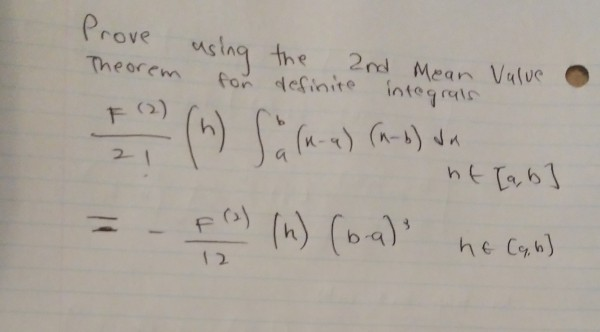 Prove using the 2nd Mean Value
Theorem for definite integrals
F^(2)/2! (h) ∫_a^b (x-a) (x-b) dx
h ∈ [a,b]
= - F^(2)/12 (h) (b-a)^3 h ∈ [a,b]